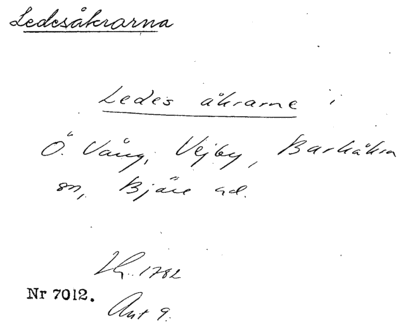 Ledesåkrarna
Ledes åkrarne i
Ö. Vång, Vejby, Barkåkra
sn, Bjäre hd.
Lh. 1782
Nr 7012.
Akt 9.